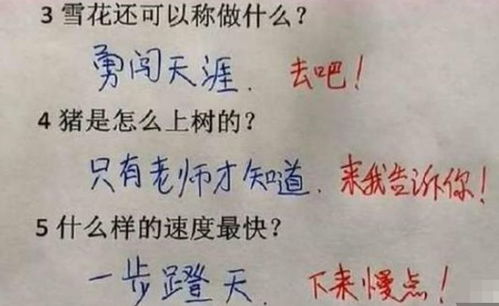 3 雪花还可以称做什么?
勇闯天涯. 去吧!
4 猪是怎么上树的?
只有老师才知道. 来我告诉你!
5 什么样的速度最快?
一步蹬天. 下来慢点!